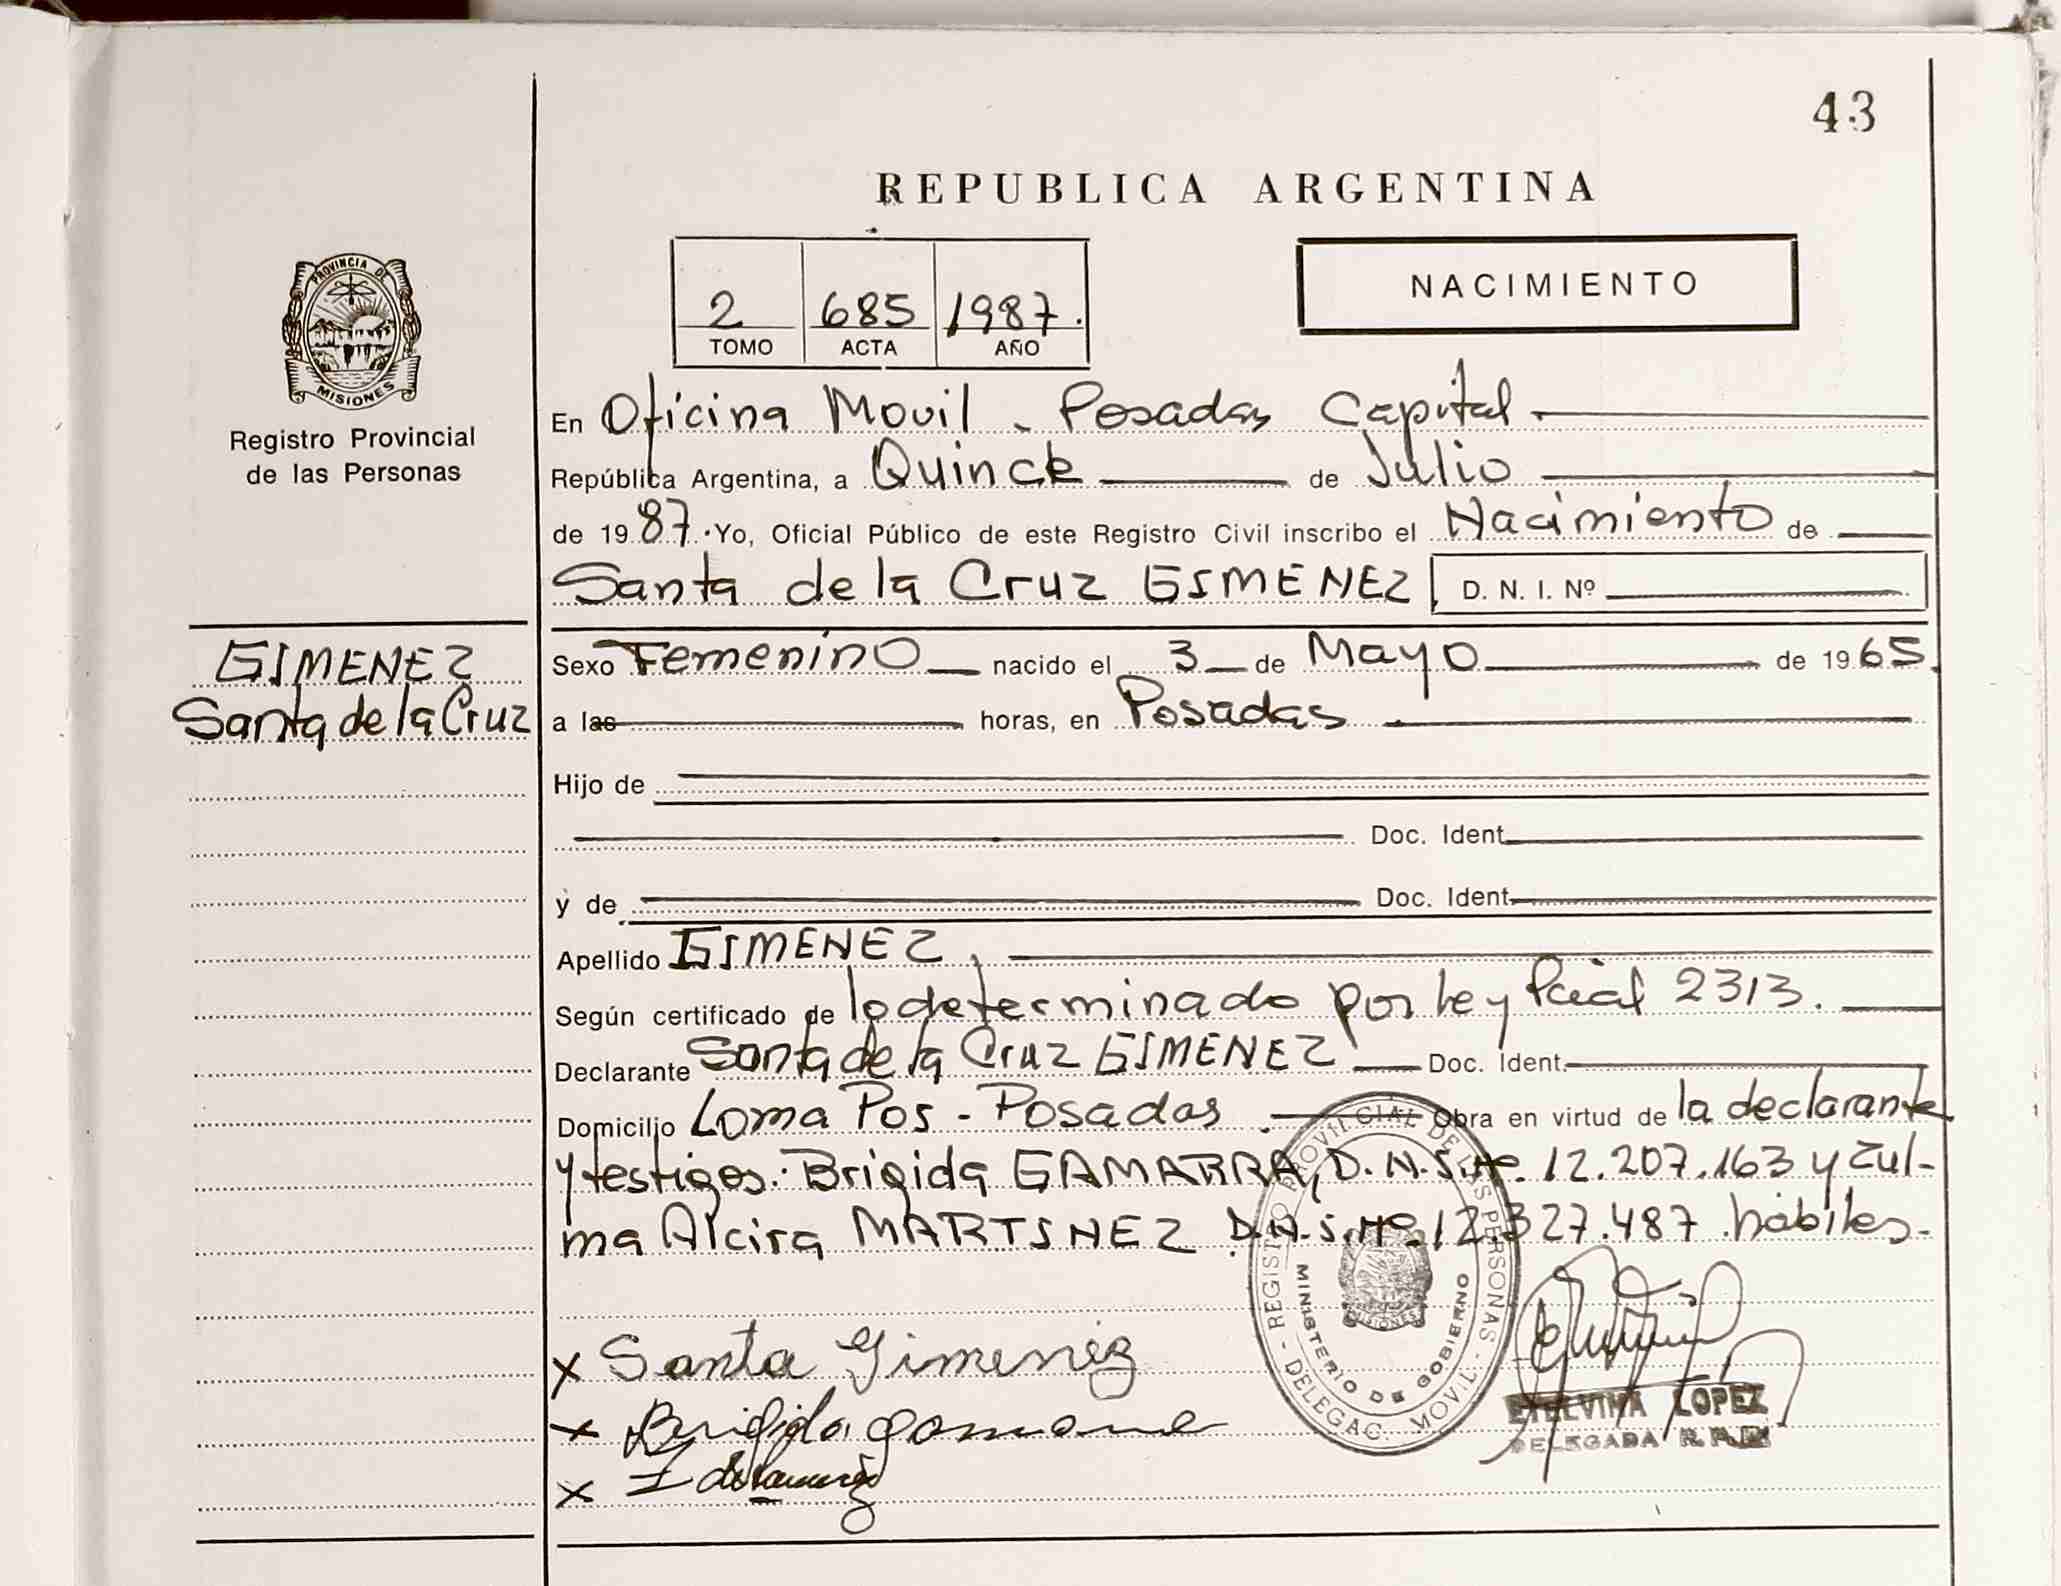 43
REPUBLICA ARGENTINA
PROVINCIA DE
MISIONES
Registro Provincial
de las Personas
2 685 1987.
TOMO ACTA AÑO
NACIMIENTO
En Oficina Movil - Posadas Capital
República Argentina, a Quince de Julio
de 1987. Yo, Oficial Público de este Registro Civil inscribo el Nacimiento de
Santa de la Cruz GIMENEZ D. N. I. Nº
GIMENEZ
Santa de la Cruz
Sexo Femenino nacido el 3 de Mayo de 1965.
a las horas, en Posadas
Hijo de
Doc. Ident.
y de Doc. Ident.
Apellido GIMENEZ
Según certificado de lo determinado por Ley Pcial 2313.
Declarante Santa de la Cruz GIMENEZ Doc. Ident.
Domicilio Loma Pos - Posadas. Obra en virtud de la declarante
y testigos: Brigida GAMARRA, D.N.I. Nº. 12.207.163 y Zul-
ma Alcira MARTINEZ D.N.I. Nº. 12.327.487 hábiles.
REGISTRO PROVINCIAL DE LAS PERSONAS - DELEGAC. MOVIL -
MINISTERIO DE GOBIERNO
MISIONES
x Santa Gimenez
x Brigida
x
ETELVINA LOPEZ
DELEGADA R.P.P.